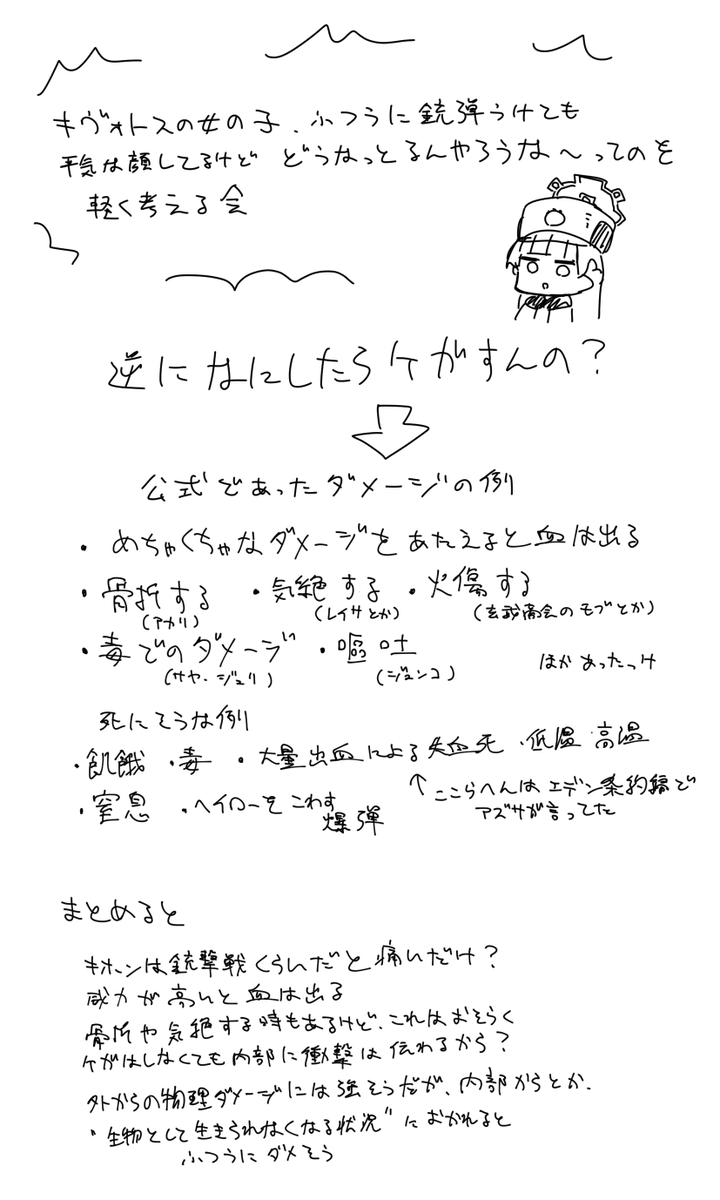 キヴォトスの女の子、ふつうに銃弾うけても
平気な顔してるけど どうなっとるんやろうな〜ってのを
軽く考える会
逆になにしたらケがすんの?
公式であったダメージの例
・めちゃくちゃなダメージをあたえると血は出る
・骨折する ・気絶する ・火傷する
(アカリ) (レイサとか) (玄武商会のモブとか)
・毒でのダメージ ・嘔吐
(サヤ・ジュリ) (ジュンコ) ほかあったっけ
死にそうな例
・飢餓 ・毒 ・大量出血による失血死 ・低温 高温
・窒息 ・ヘイローをこわす爆弾
↑ここらへんはエデン条約編で
アズサが言ってた
まとめると
キホンは銃撃戦くらいだと痛いだけ?
威力が高いと血は出る
骨折や気絶する時もあるけど、これはおそらく
ケガはしなくても内部に衝撃は伝わるから?
外からの物理ダメージには強そうだが、内部からとか、
"生物として生きられなくなる状況"におかれると
ふつうにダメそう